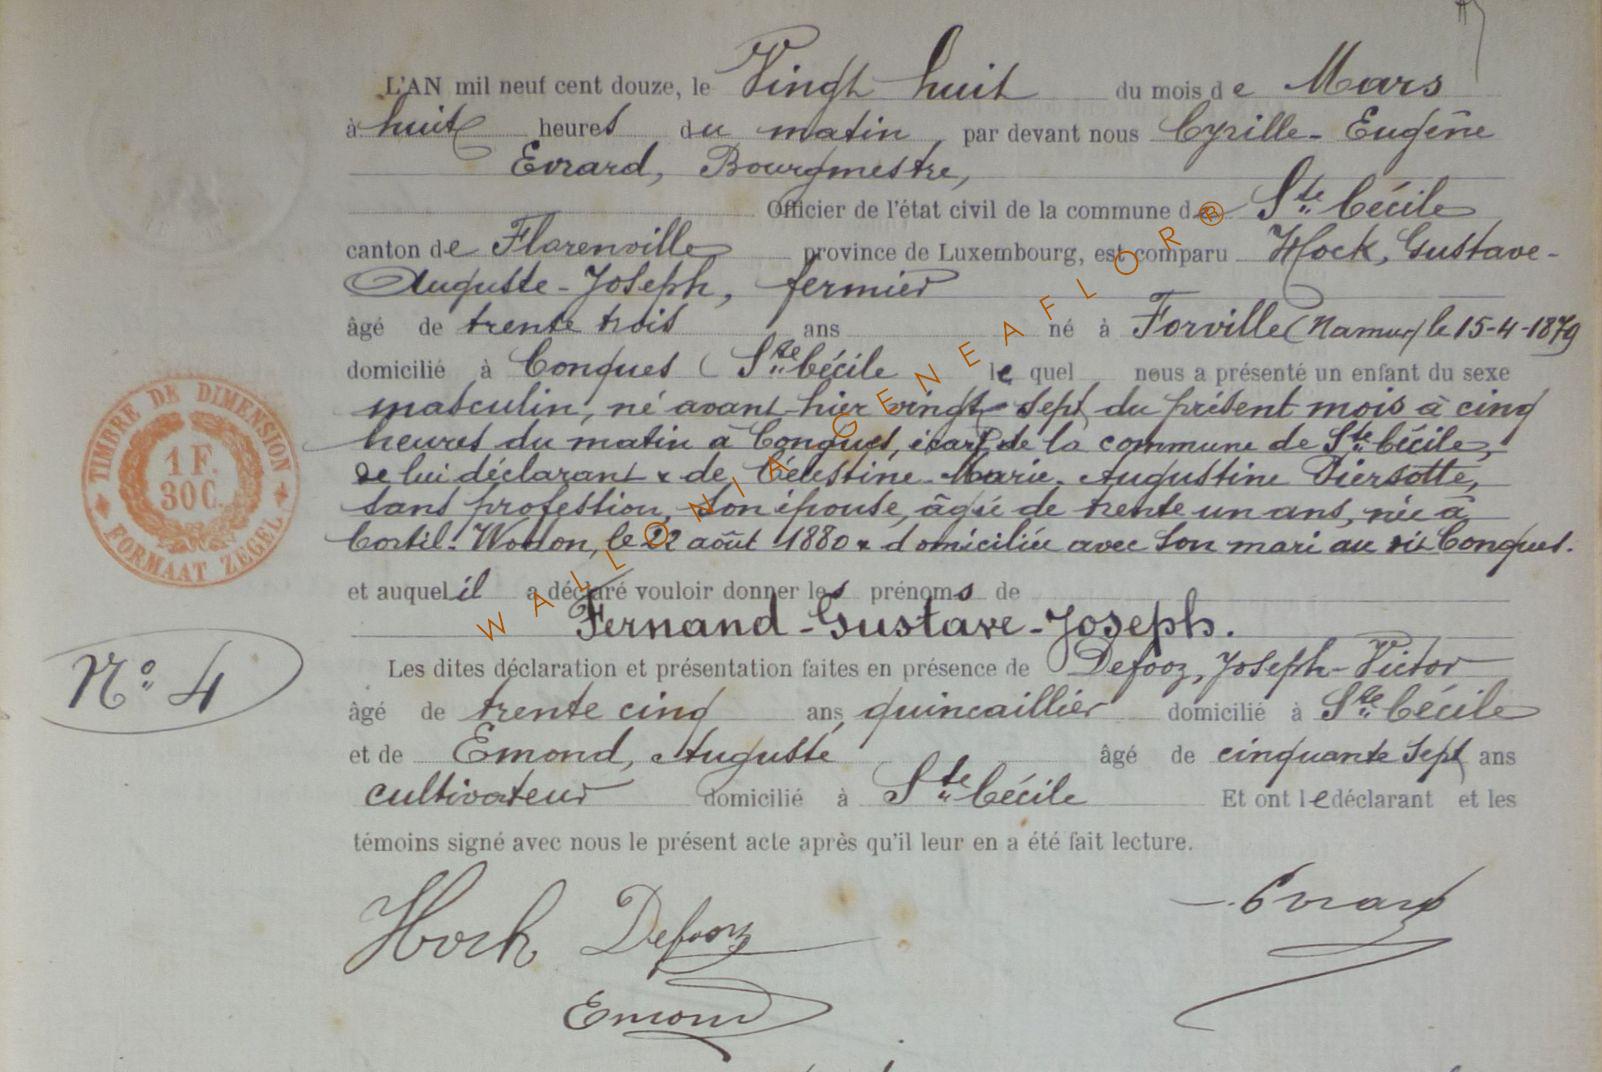 L'AN mil neuf cent douze, le Vingt huit du mois de Mars
à huit heures du matin par devant nous Cyrille-Eugène
Evrard, Bourgmestre,
Officier de l'état civil de la commune de Ste Cécile
canton de Florenville province de Luxembourg, est comparu Hock, Gustave-
Auguste-Joseph, fermier
âgé de trente trois ans né à Forville (Namur) le 15-4-1879
domicilié à Conques (Ste Cécile lequel nous a présenté un enfant du sexe
masculin, né avant-hier vingt-sept du présent mois à cinq
heures du matin à Conques, écart de la commune de Ste Cécile,
de lui déclarant & de Célestine-Marie-Augustine Piersotte,
sans profession, son épouse, âgée de trente un ans, née à
Cortil-Wodon, le 22 août 1880 & domiciliée avec son mari au dit Conques.
et auquel il a déclaré vouloir donner les prénoms de
Fernand-Gustave-Joseph.
Les dites déclaration et présentation faites en présence de Defooz, Joseph-Victor
âgé de trente cinq ans, quincaillier domicilié à Ste Cécile
et de Emond, Auguste âgé de cinquante sept ans
cultivateur domicilié à Ste Cécile Et ont le déclarant et les
témoins signé avec nous le présent acte après qu'il leur en a été fait lecture.
Hock Defooz Evrard
Emond
TIMBRE DE DIMENSION
1 F.
30 C.
FORMAAT ZEGEL
No 4
WALLONIA GENEAFLOR®